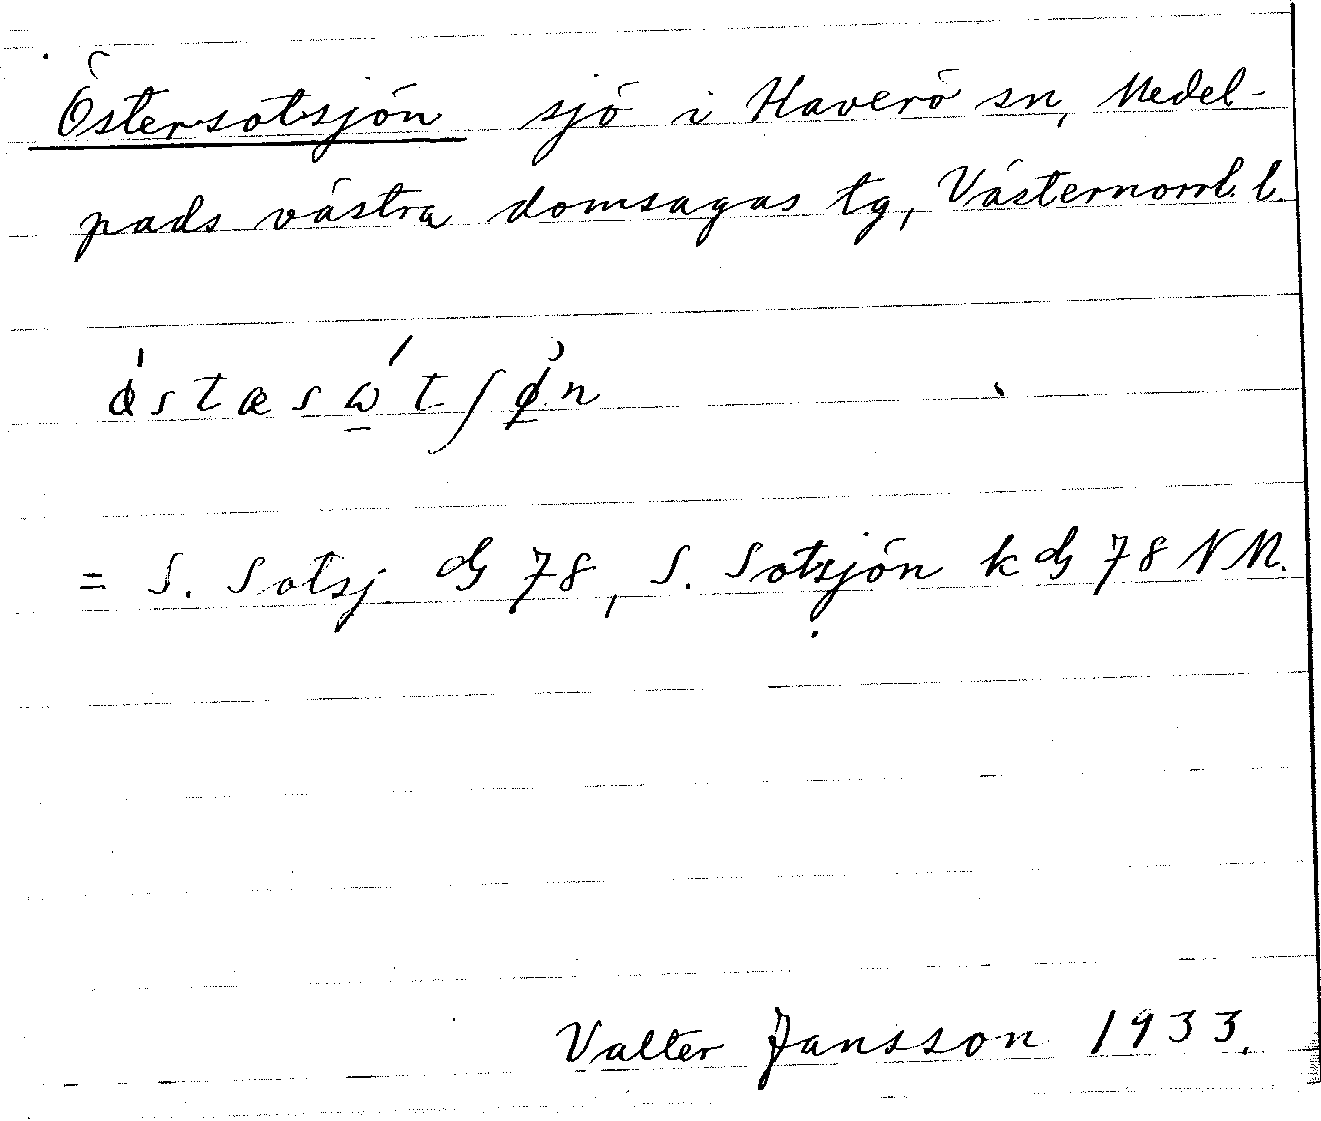 Östersotsjön sjö i Haverö sn, Medel-
pads västra domsagas tg, Västernorrl. l.
= S. Sotsj. dG 78, S. Sotsjön k dG 78 NM.
Valter Jansson 1933.